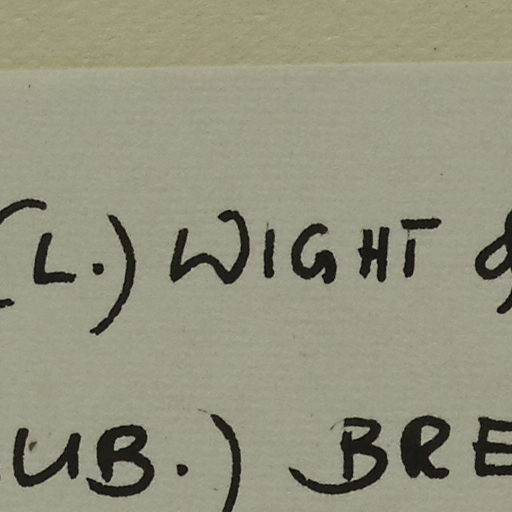 (L.) WIGHT &
UB.) BRE